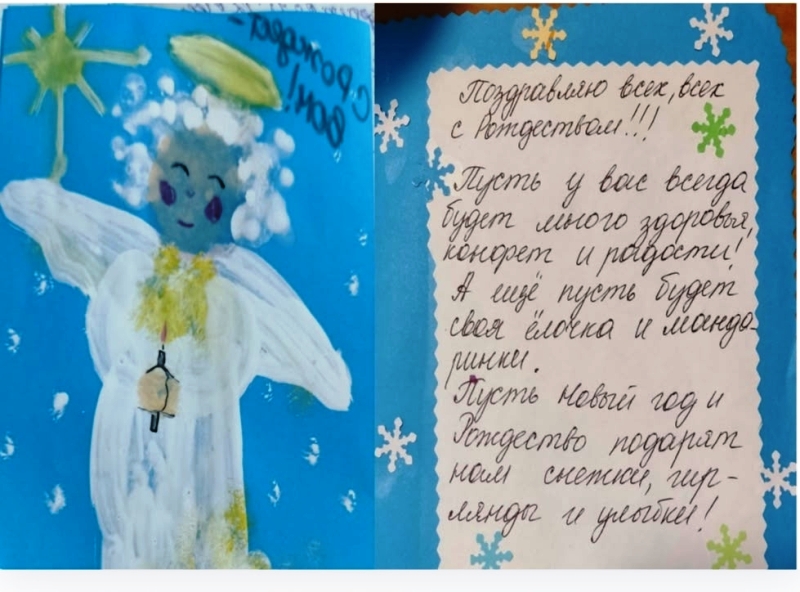 С рождест-
вом!
Поздравляю всех, всех
с Рождеством!!!
Пусть у вас всегда
будет много здоровья,
конфет и радости!
А ещё пусть будет
своя ёлочка и манда-
ринки.
Пусть Новый год и
Рождество подарят
нам снежки, гир-
лянды и улыбки!